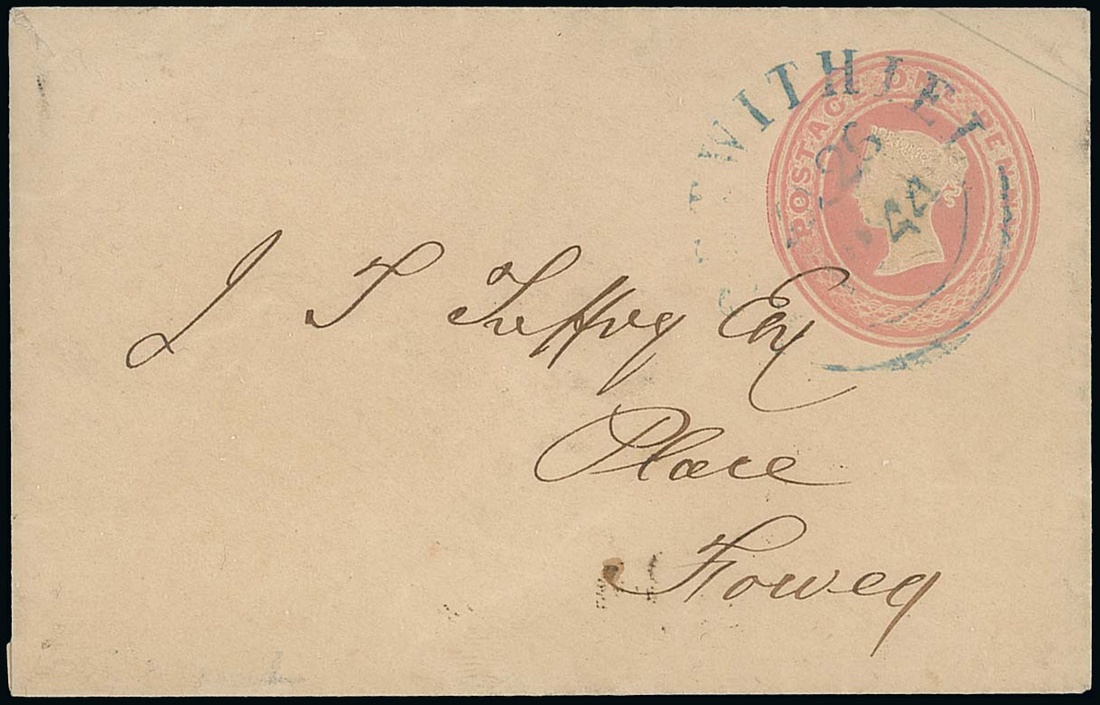 POSTAGE ONE PENNY
TWITHIEL
26
44
J T Treffry Esq
Place
Fowey